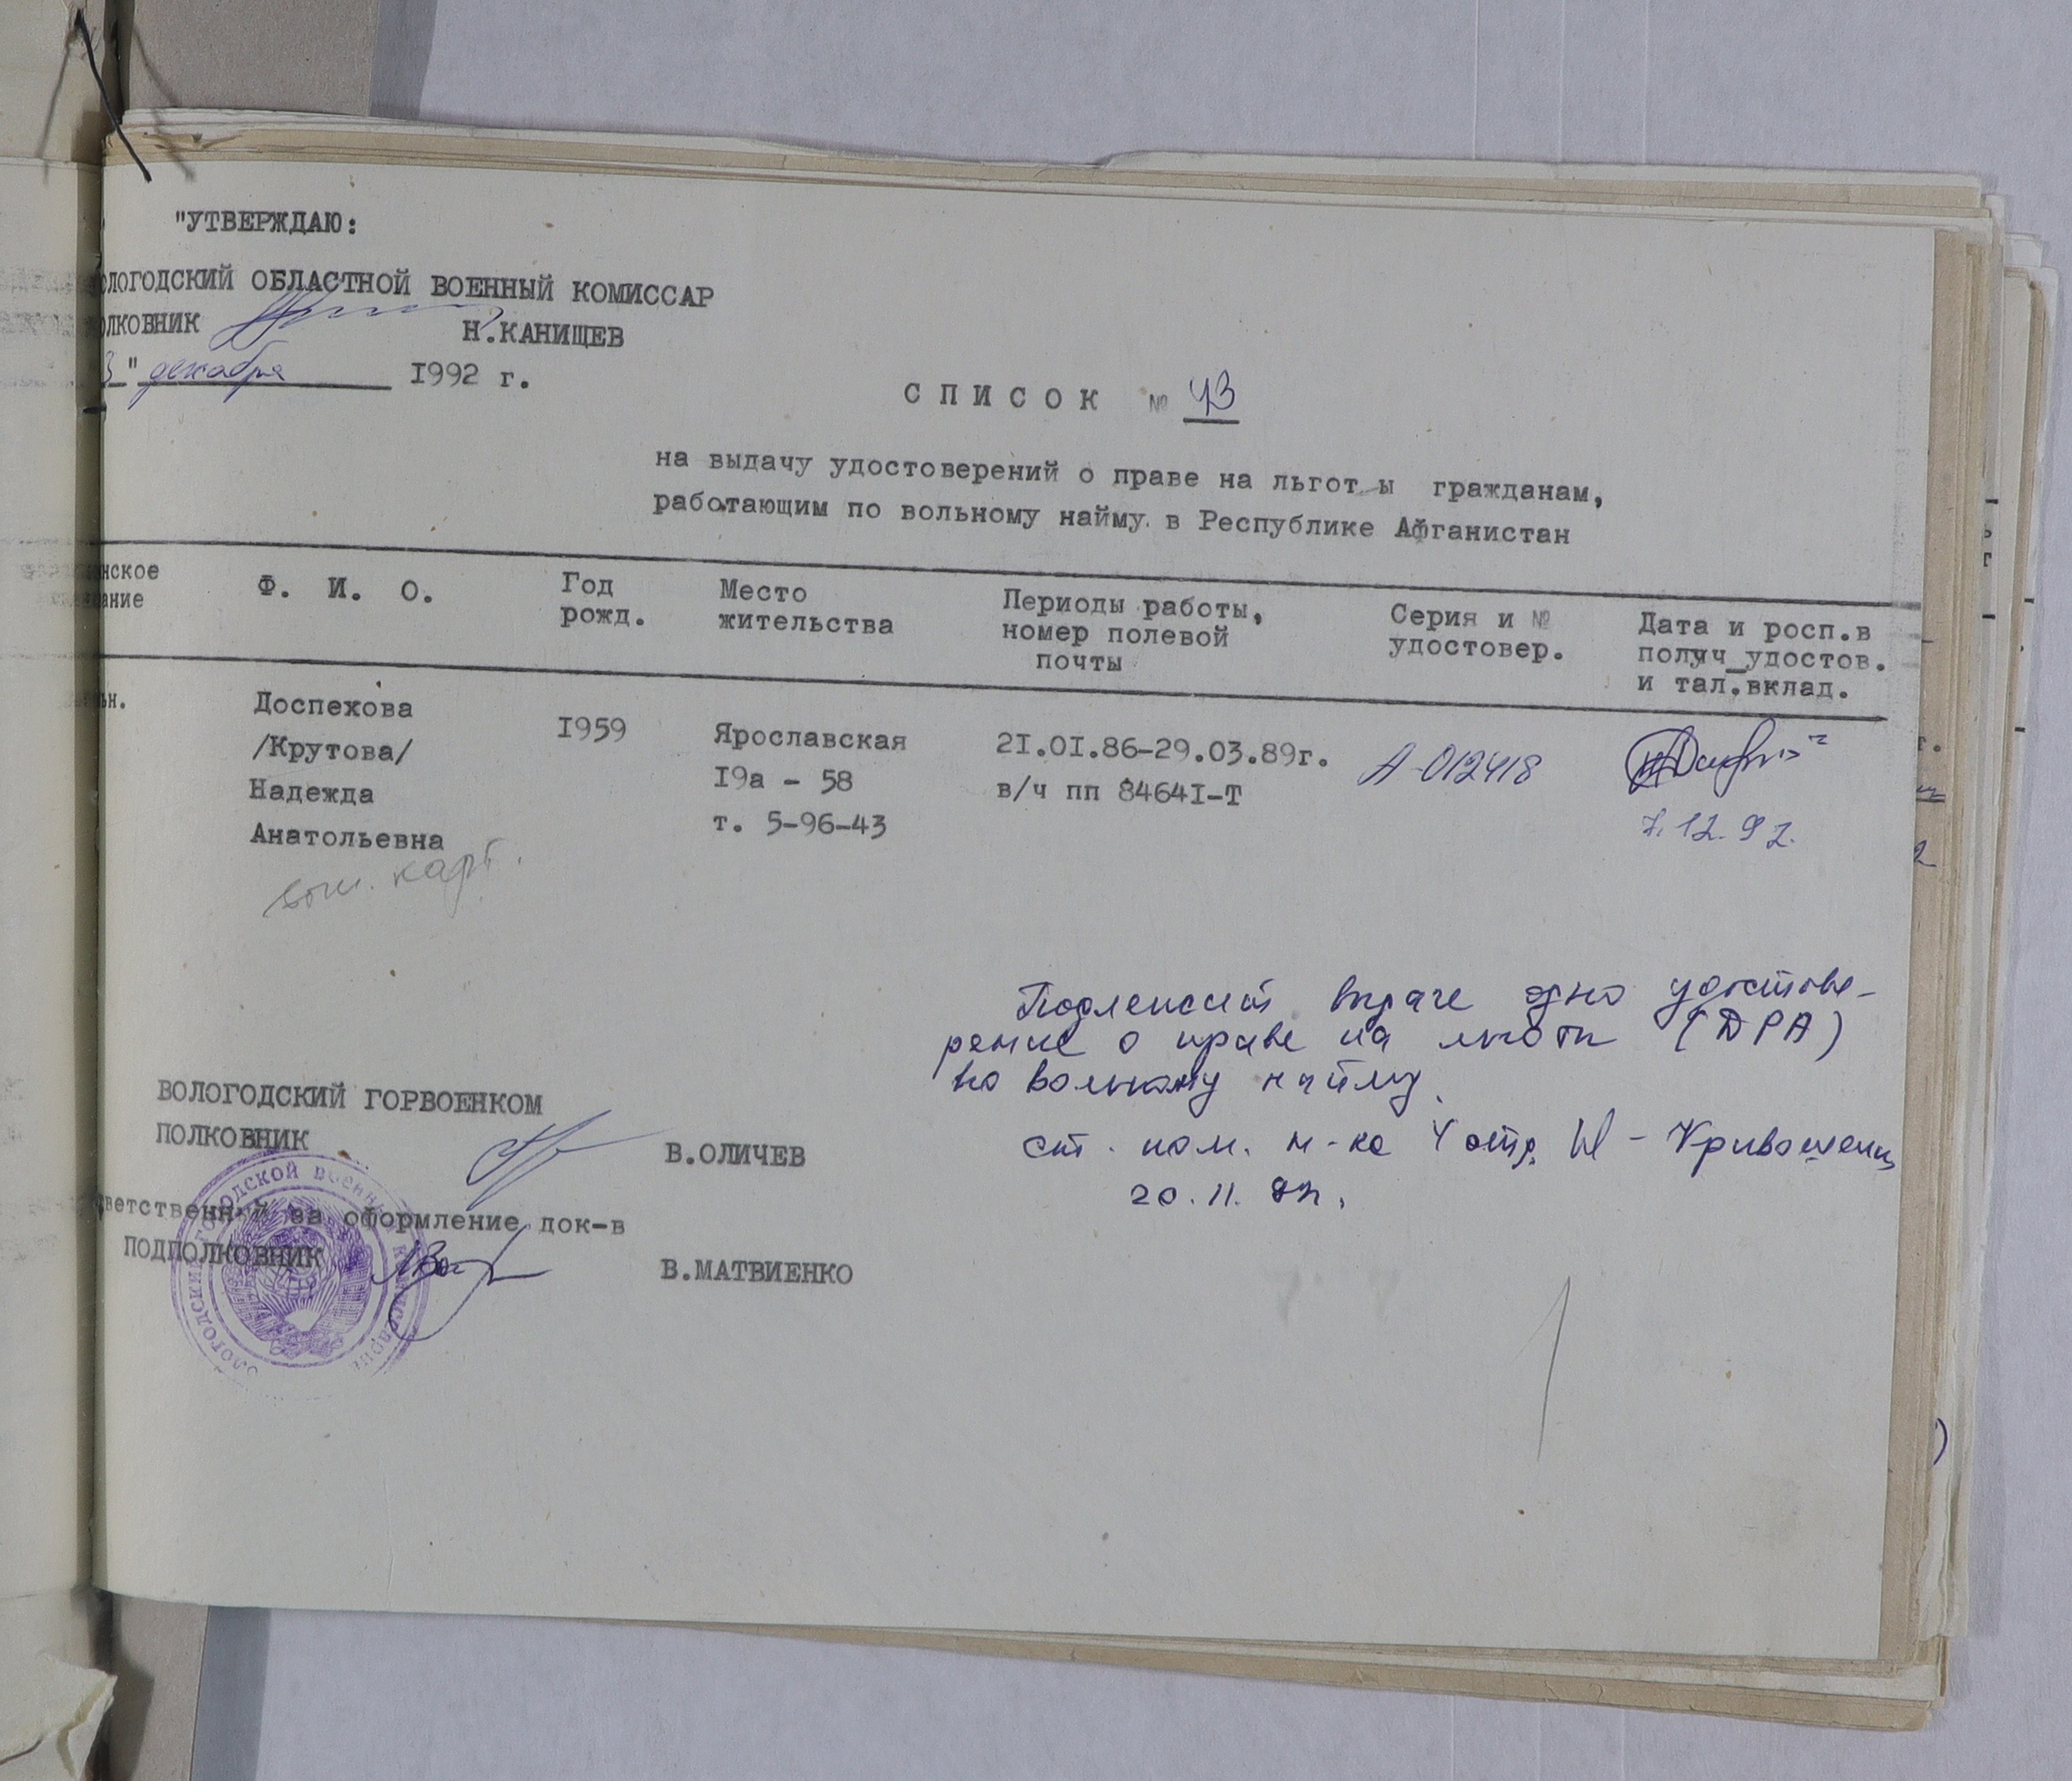 "УТВЕРЖДАЮ:
ОЛОГОДСКИЙ ОБЛАСТНОЙ ВОЕННЫЙ КОМИССАР
ОЛКОВНИК Н.КАНИЩЕВ
3" декабря 1992 г.
СПИСОК № 43
на выдачу удостоверений о праве на льгот ы гражданам,
работающим по вольному найму в Республике Афганистан
нское
ание
Ф. И. О.
Год
рожд.
Место
жительства
Периоды работы,
номер полевой
почты
Серия и №
удостовер.
Дата и росп.в
получ_удостов.
и тал.вклад.
ьн.
Доспехова
/Крутова/
Надежда
Анатольевна
I959
Ярославская
I9а - 58
т. 5-96-43
2I.0I.86-29.03.89г.
в/ч пп 8464I-Т
А-012418
7.12.92.
карт.
Подлежит выдаче одно удостове-
рение о праве на льготы (ДРА)
по вольному найму.
ст. пом. н-ка 4 отд.
20.11.92г.
ВОЛОГОДСКИЙ ГОРВОЕНКОМ
ПОЛКОВНИК В.ОЛИЧЕВ
ветственный за оформление док-в
ПОДПОЛКОВНИК В.МАТВИЕНКО
ОЛОГОДСКИЙ ГОРОДСКОЙ ВОЕННЫЙ КОМИССАРИАТ